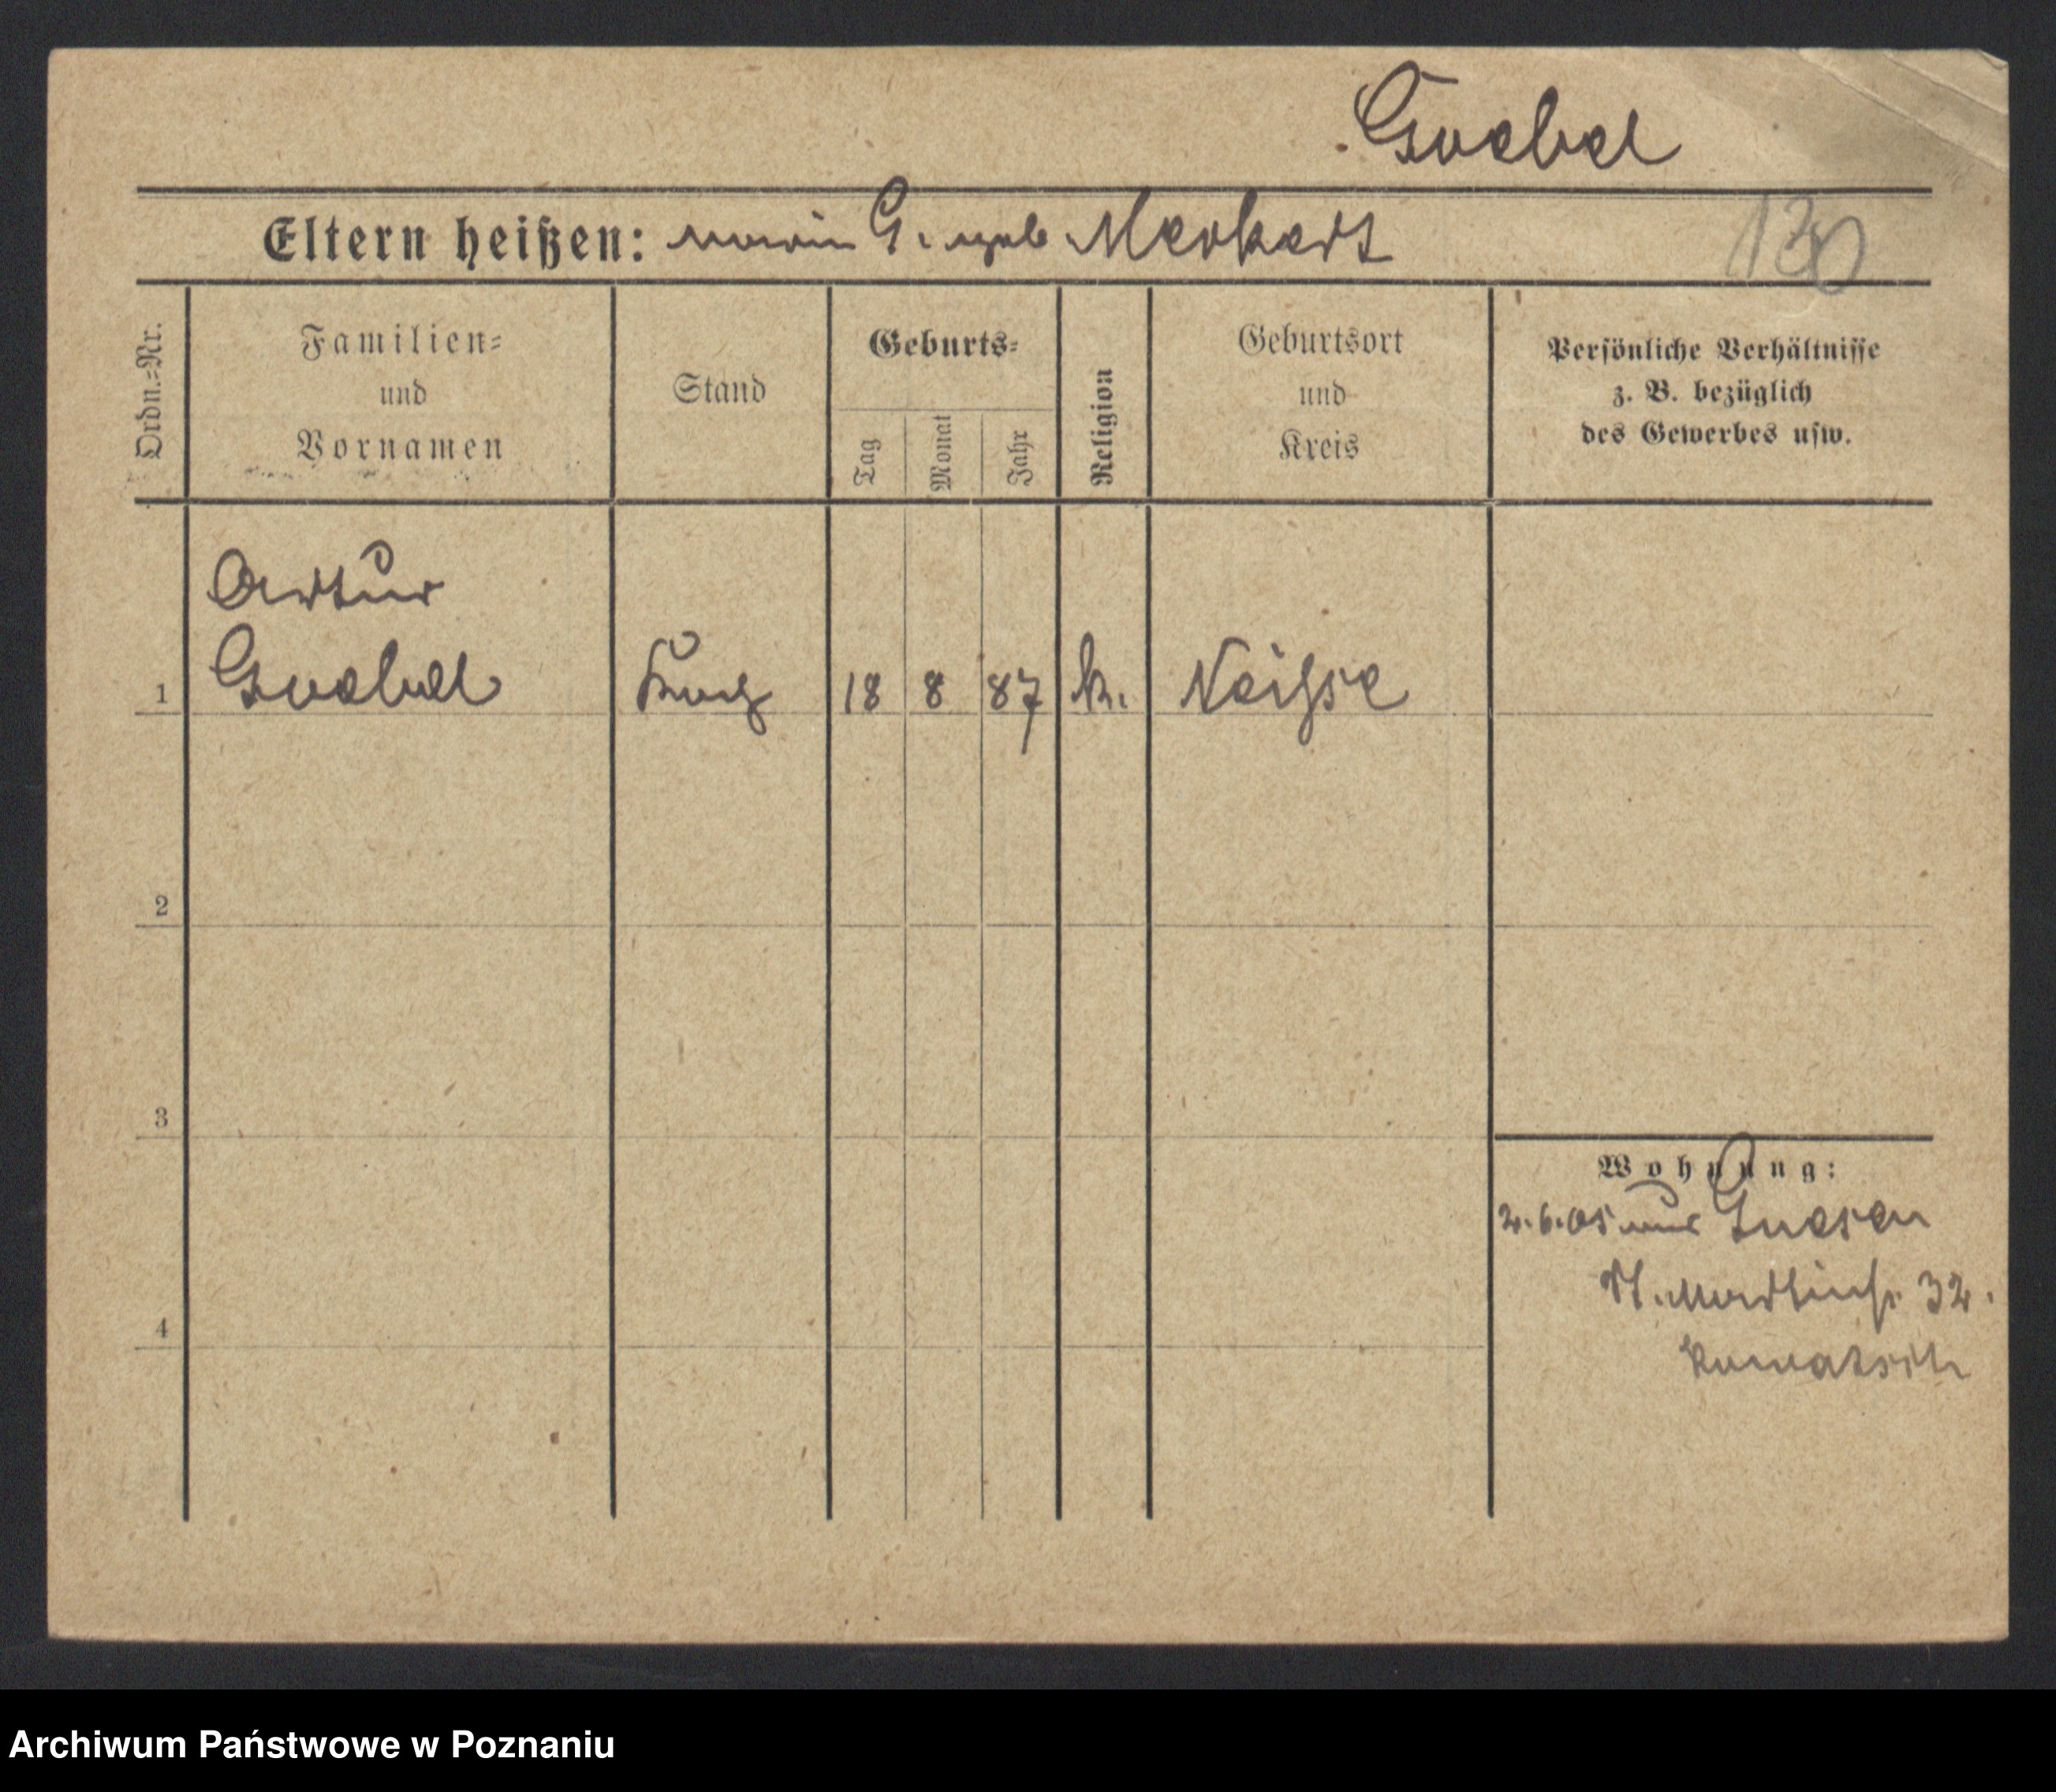 Goebel
Eltern heißen: Maria G. geb Merkert
130
Ordn.=Nr.
Familien=
und
Vornamen
Stand
Geburts=
Tag
Monat
Jahr
Religion
Geburtsort
und
Kreis
Persönliche Verhältnisse
z. B. bezüglich
des Gewerbes usw.
Artur
1 Goebel Koch 18 8 87 k. Neisse
2
3
4
Wohnung:
2.6.05 aus Gnesen
St. Martinstr. 32.
Archiwum Państwowe w Poznaniu